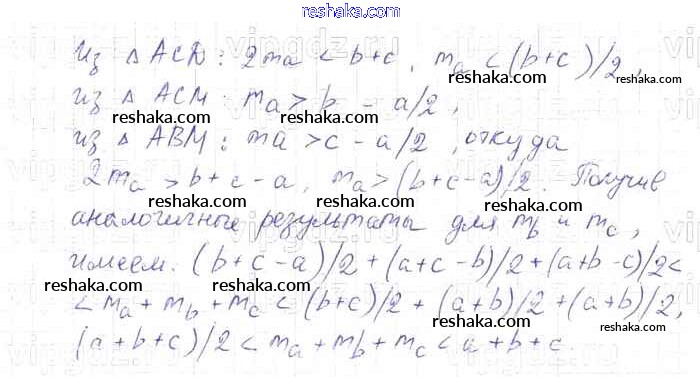 reshaka.com
Из △ACD: 2ma < b+c, ma < (b+c)/2,
reshaka.com reshaka.com
из △ACM: ma > b - a/2,
reshaka.com
из △ABM: ma > c - a/2, откуда
reshaka.com
2ma > b+c-a, ma > (b+c-a)/2. Получив
reshaka.com reshaka.com
аналогичные результаты для mb и mc,
reshaka.com
имеем: (b+c-a)/2 + (a+c-b)/2 + (a+b-c)/2 <
reshaka.com reshaka.com
< ma + mb + mc < (b+c)/2 + (a+b)/2 + (a+b)/2,
reshaka.com reshaka.com
(a+b+c)/2 < ma + mb + mc < a+b+c.
reshaka.com